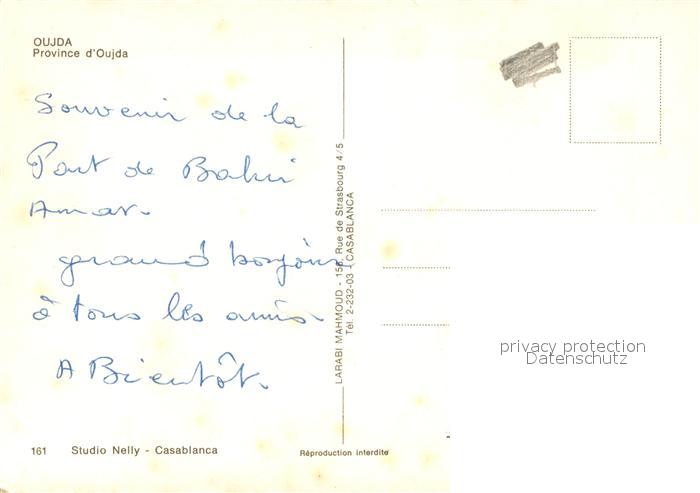 OUJDA
Province d'Oujda
Souvenir de la
Part de Bahri
Amar.
grand bonjour
à tous les amis
A Bientôt.
161 Studio Nelly - Casablanca
LARABI MAHMOUD - 156, Rue de Strasbourg 4/5
Tél. 2-232-03 - CASABLANCA
Réproduction interdite
privacy protection
Datenschutz